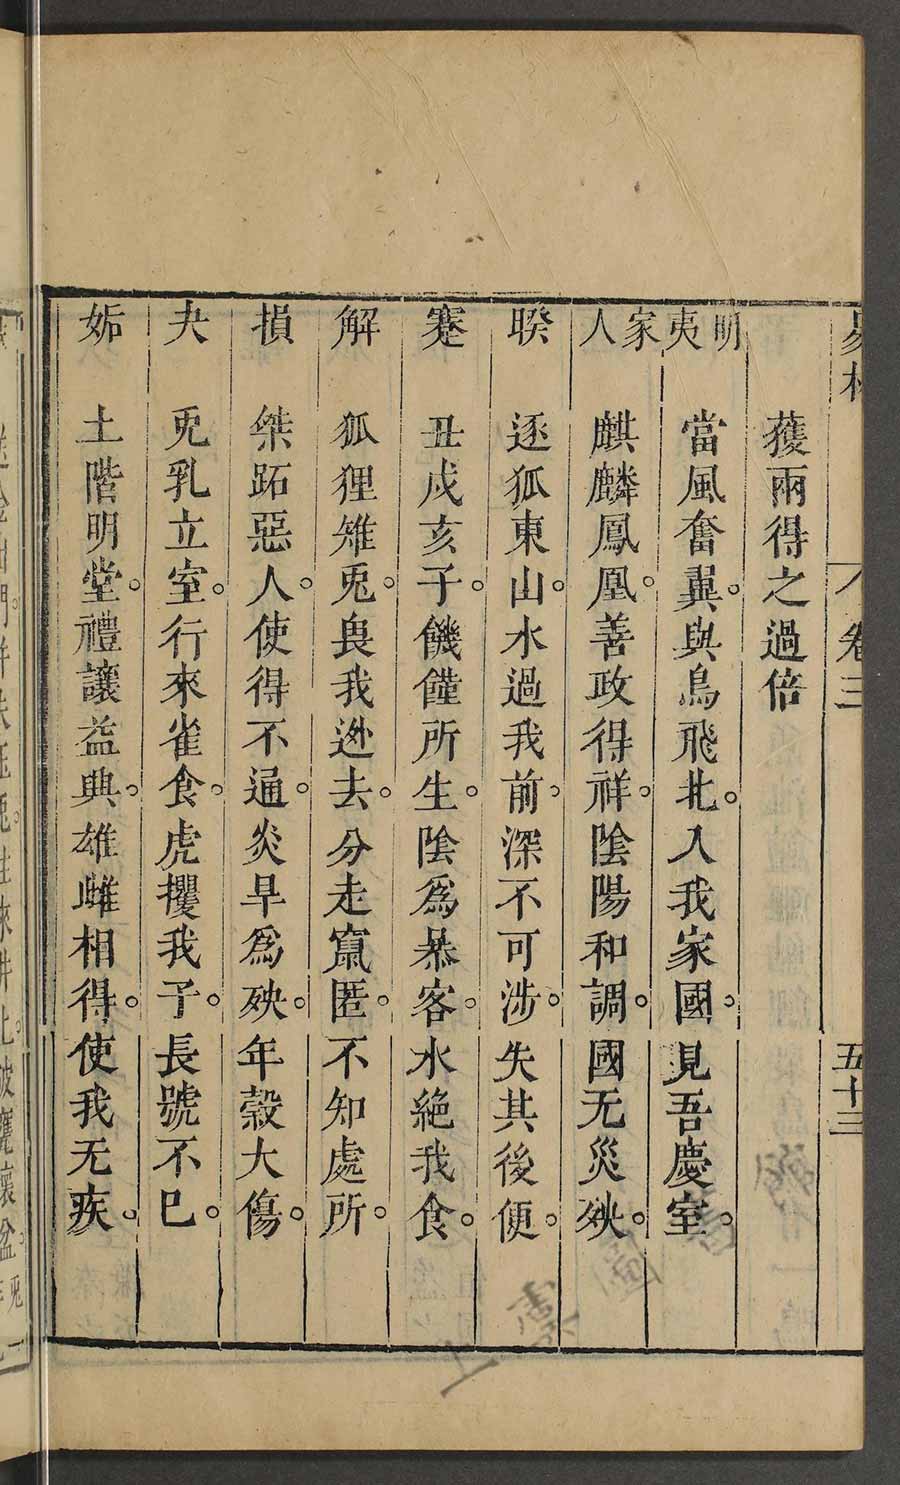 易林 卷三 五十三
獲兩得之過倍
明夷 當風奮翼。與鳥飛北。入我家國。見吾慶室。
家人 麒麟鳳凰。善政得祥。陰陽和調。國无災殃。
睽 逐狐東山。水過我前。深不可涉。失其後便。
蹇 丑戌亥子。饑饉所生。陰爲暴客。水絶我食。
解 狐狸雉兎。畏我逃去。分走竄匿。不知處所。
損 桀跖惡人。使得不通。炎旱爲殃。年穀大傷。
夬 兎乳立室。行來雀食。虎攫我子。長號不已。
姤 土階明堂。禮讓益興。雄雌相得。使我无疾。